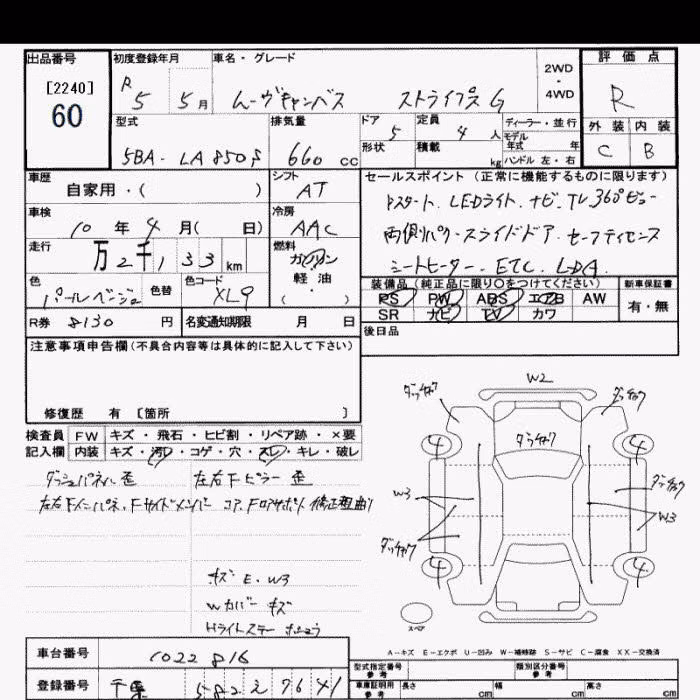 出品番号
[2240]
60
初度登録年月
R 5 5月
車名・グレード
ムーヴキャンバス ストライプスG
2WD
・
4WD
評価点
R
外装 内装
C B
型式
5BA-LA850S
排気量
660 cc
ドア
5
形状
定員
4 人
積載
kg
ディーラー・並行
モデル年式 年
ハンドル 左・右
車歴
自家用・( )
シフト
AT
車検
10年4月( 日)
冷房
AAC
走行
万2千133 km
燃料
ガソリン
軽油
( )
色
パールベージュ
色替
色コード
XL9
R券 8130 円
名変通知期限 月 日
セールスポイント(正常に機能するものに限ります)
Pスタート. LEDライト. ナビ. TV 360°ビュー
両側パワースライドドア. セーフティセンス
シートヒーター. ETC. LDA.
装備品(純正品に限り○をつけてください)
PS PW ABS エアB AW
SR ナビ TV カワ
新車保証書
有・無
後日品
注意事項申告欄(不具合内容等は具体的に記入して下さい)
修復歴 有 〔箇所 〕
検査員記入欄
FW キズ・飛石・ヒビ割・リペア跡・×要
内装 キズ・汚レ・コゲ・穴・スレ・キレ・破レ
ダッシュパネル歪 左右Fピラー歪
左右Fインパネ、Fサイドメンバー
キズ E. W3
Wカバー キズ
Hライトステー
W2
ダッチャク
ダッチャク
ダッチャク
4
4
W3
ダッチャク
ダッチャク
W3
4
4
スペア
A-キズ E-エクボ U-凹み W-補修跡 S-サビ C-腐食 XX-交換済
車台番号 1022816
登録番号 千葉 582 え 7641
型式指定番号 参考
類別区分番号 参考
車庫証明用 参考
長さ cm
幅 cm
高さ cm